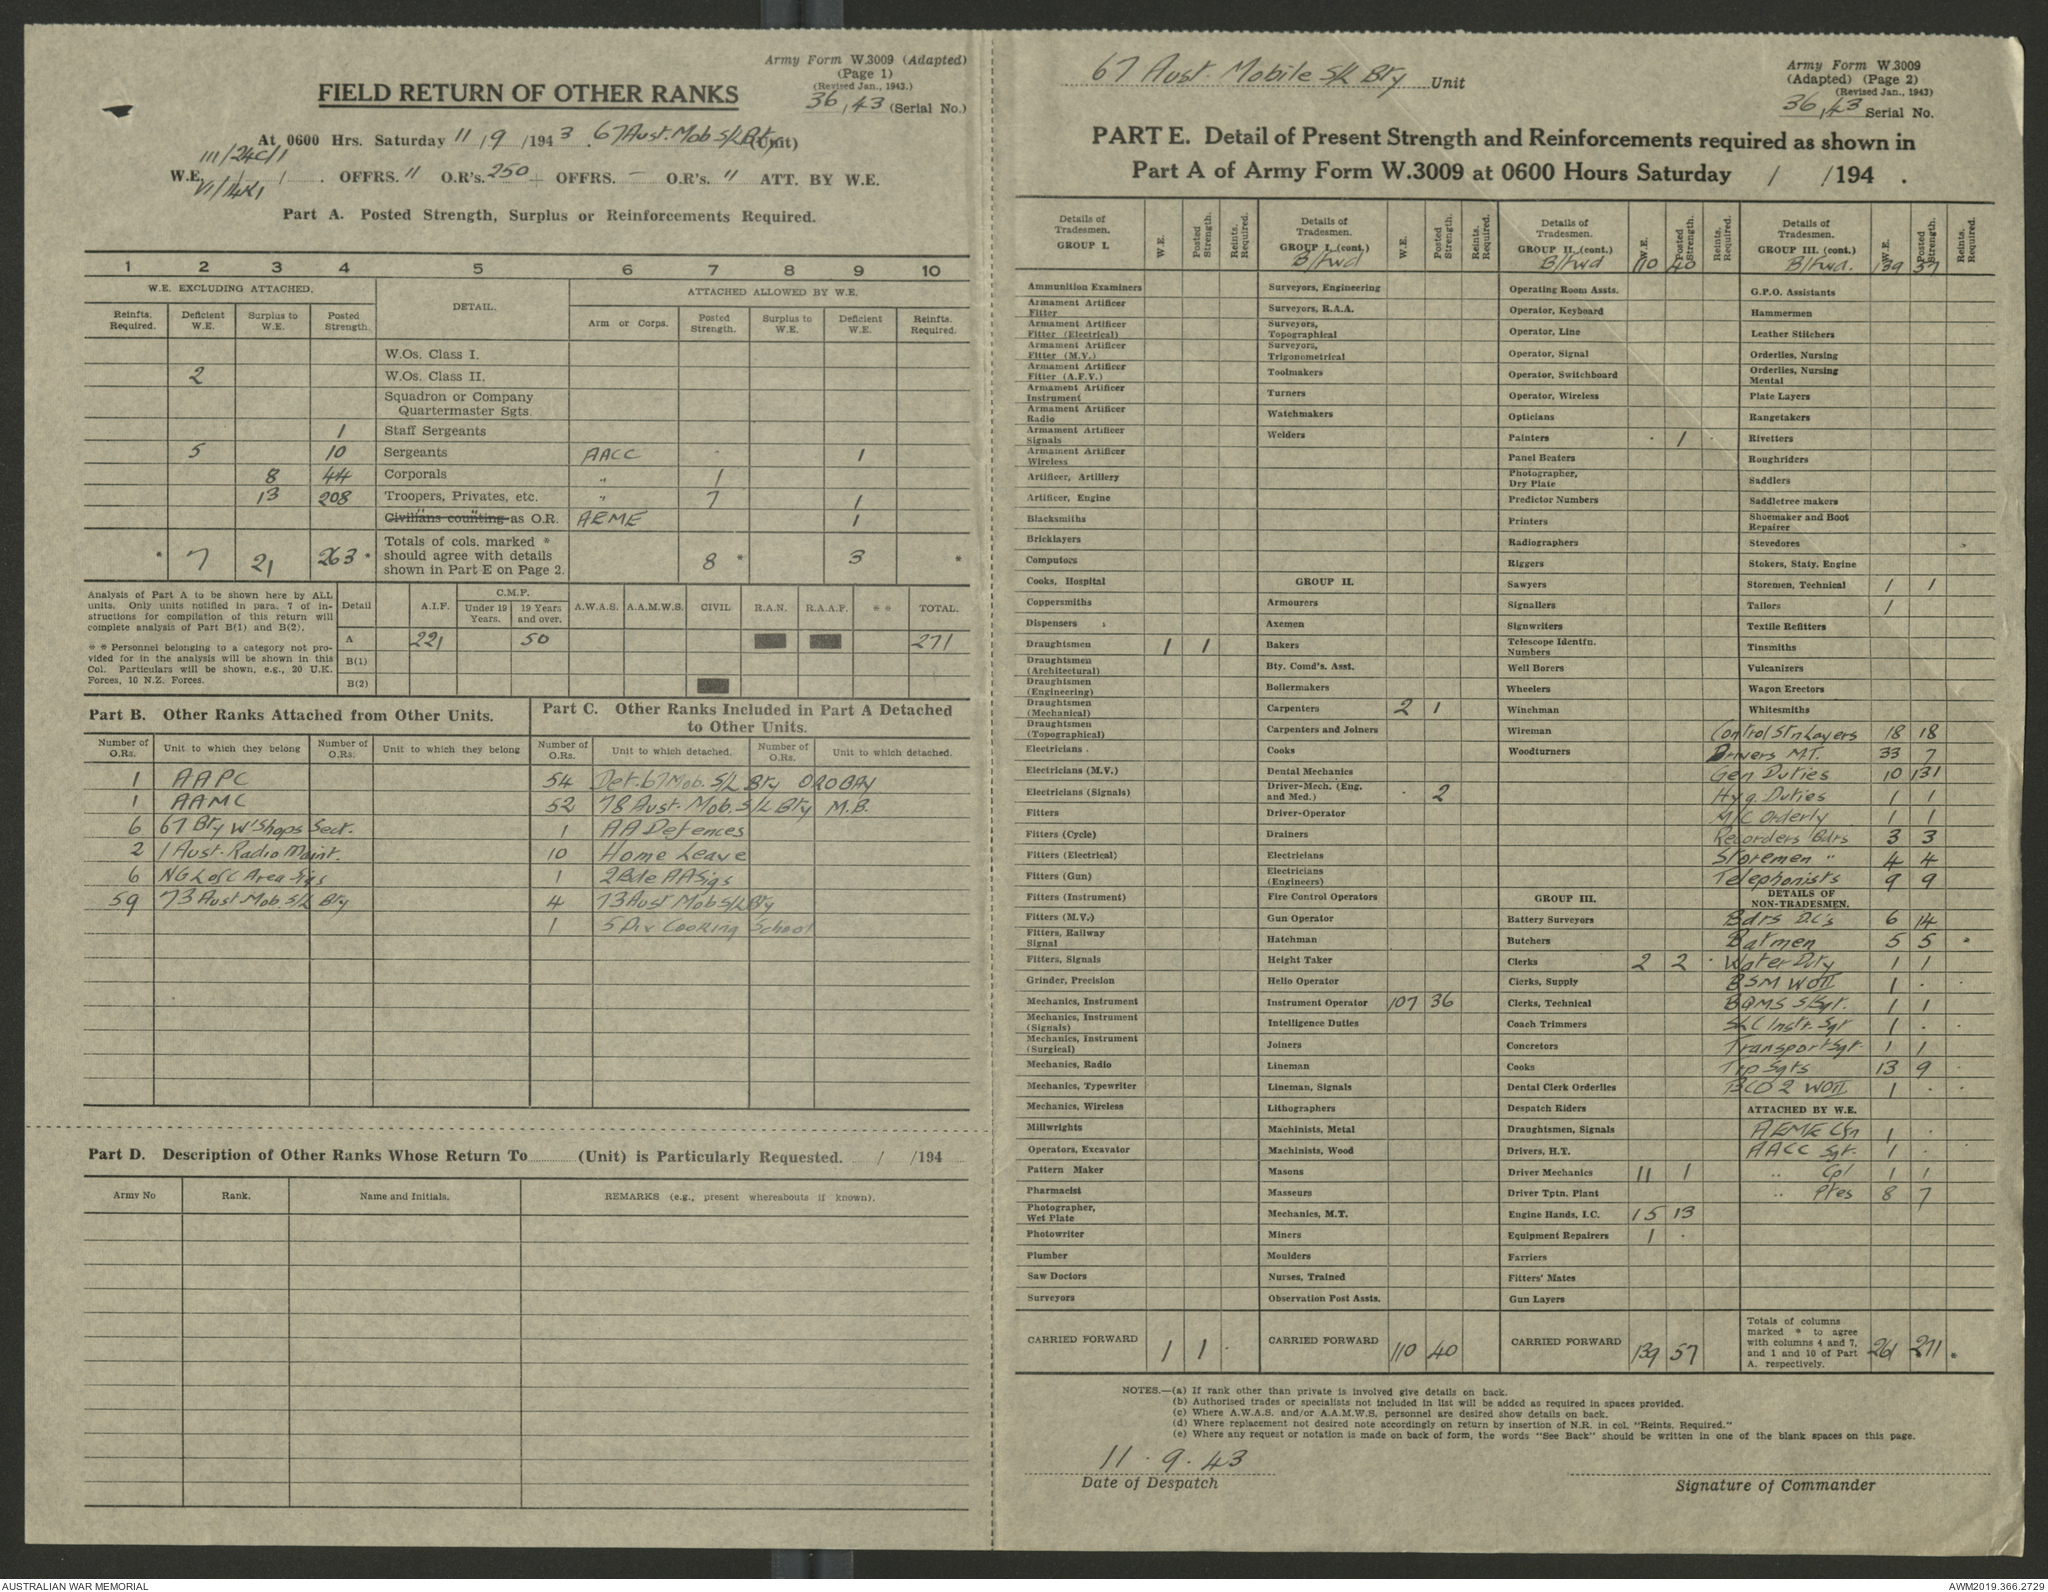 Army Form W.3009 (Adapted)
(Page 1)
(Revised Jan., 1943.)
36/43 (Serial No.)
FIELD RETURN OF OTHER RANKS
At 0600 Hrs. Saturday 11/9/1943. 67 Aust. Mob S/L Bty (Unit)
III/24C/1
W.E. OFFRS. " O.R's. 250 + OFFRS. - O.R's. 11 ATT. BY W.E.
Part A. Posted Strength, Surplus or Reinforcements Required.
1 2 3 4 5 6 7 8 9 10
W.E. EXCLUDING ATTACHED. DETAIL. ATTACHED ALLOWED BY W.E.
Reinfts. Required. Deficient W.E. Surplus to W.E. Posted Strength. Arm or Corps. Posted Strength. Surplus to W.E. Deficient W.E. Reinfts. Required.
W.Os. Class I.
2 W.Os. Class II.
Squadron or Company Quartermaster Sgts.
1 Staff Sergeants
5 10 Sergeants AACC . 1
8 44 Corporals " 1
13 208 Troopers, Privates, etc. " 7 1
Civilians counting as O.R. AEME 1
* 7 21 263 * Totals of cols. marked * should agree with details shown in Part E on Page 2. 8 * 3 *
Analysis of Part A to be shown here by ALL units. Only units notified in para. 7 of instructions for compilation of this return will complete analysis of Part B(1) and B(2).
** Personnel belonging to a category not provided for in the analysis will be shown in this Col. Particulars will be shown, e.g., 20 U.K. Forces, 10 N.Z. Forces.
Detail A.I.F. C.M.F. Under 19 Years. 19 Years and over. A.W.A.S. A.A.M.W.S. CIVIL R.A.N. R.A.A.F. ** TOTAL.
A 221 50 271
B(1)
B(2)
Part B. Other Ranks Attached from Other Units.
Number of O.Rs. Unit to which they belong Number of O.Rs. Unit to which they belong
1 AAPC
1 AAMC
6 67 Bty W'Shops Sect.
2 1 Aust. Radio Maint.
6 NG L of C Area Sigs
59 73 Aust Mob. S/L Bty
Part C. Other Ranks Included in Part A Detached to Other Units.
Number of O.Rs. Unit to which detached. Number of O.Rs. Unit to which detached.
54 Det. 67 Mob. S/L Bty OROBAY
52 78 Aust. Mob. S/L Bty M.B.
1 AA Defences
10 Home Leave
1 2 Bde AASigs
4 73 Aust Mob S/L Bty
1 5 Div Cooking School
Part D. Description of Other Ranks Whose Return To (Unit) is Particularly Requested. / /194
Army No Rank. Name and Initials. REMARKS (e.g., present whereabouts if known).
67 Aust. Mobile S/L Bty Unit
Army Form W.3009
(Adapted) (Page 2)
(Revised Jan., 1943)
36/43 Serial No.
PART E. Detail of Present Strength and Reinforcements required as shown in
Part A of Army Form W.3009 at 0600 Hours Saturday / /194 .
Details of Tradesmen. GROUP I. W.E. Posted Strength. Reints. Required.
Ammunition Examiners
Armament Artificer Fitter
Armament Artificer Fitter (Electrical)
Armament Artificer Fitter (M.V.)
Armament Artificer Fitter (A.F.V.)
Armament Artificer Instrument
Armament Artificer Radio
Armament Artificer Signals
Armament Artificer Wireless
Artificer, Artillery
Artificer, Engine
Blacksmiths
Bricklayers
Computors
Cooks, Hospital
Coppersmiths
Dispensers
Draughtsmen 1 1
Draughtsmen (Architectural)
Draughtsmen (Engineering)
Draughtsmen (Mechanical)
Draughtsmen (Topographical)
Electricians
Electricians (M.V.)
Electricians (Signals)
Fitters
Fitters (Cycle)
Fitters (Electrical)
Fitters (Gun)
Fitters (Instrument)
Fitters (M.V.)
Fitters, Railway Signal
Fitters, Signals
Grinder, Precision
Mechanics, Instrument
Mechanics, Instrument (Signals)
Mechanics, Instrument (Surgical)
Mechanics, Radio
Mechanics, Typewriter
Mechanics, Wireless
Millwrights
Operators, Excavator
Pattern Maker
Pharmacist
Photographer, Wet Plate
Photowriter
Plumber
Saw Doctors
Surveyors
CARRIED FORWARD 1 1
Details of Tradesmen. GROUP I. (cont.) W.E. Posted Strength. Reints. Required.
B/fwd
Surveyors, Engineering
Surveyors, R.A.A.
Surveyors, Topographical
Surveyors, Trigonometrical
Toolmakers
Turners
Watchmakers
Welders
GROUP II.
Armourers
Axemen
Bakers
Bty. Comd's. Asst.
Boilermakers
Carpenters 2 1
Carpenters and Joiners
Cooks
Dental Mechanics
Driver-Mech. (Eng. and Med.) . 2
Driver-Operator
Drainers
Electricians
Electricians (Engineers)
Fire Control Operators
Gun Operator
Hatchman
Height Taker
Helio Operator
Instrument Operator 107 36
Intelligence Duties
Joiners
Lineman
Lineman, Signals
Lithographers
Machinists, Metal
Machinists, Wood
Masons
Masseurs
Mechanics, M.T.
Miners
Moulders
Nurses, Trained
Observation Post Assts.
CARRIED FORWARD 110 40
Details of Tradesmen. GROUP II. (cont.) W.E. Posted Strength. Reints. Required.
B/fwd 110 40
Operating Room Assts.
Operator, Keyboard
Operator, Line
Operator, Signal
Operator, Switchboard
Operator, Wireless
Opticians
Painters . 1
Panel Beaters
Photographer, Dry Plate
Predictor Numbers
Printers
Radiographers
Riggers
Sawyers
Signallers
Signwriters
Telescope Identfn. Numbers
Well Borers
Wheelers
Winchman
Wireman
Woodturners
GROUP III.
Battery Surveyors
Butchers
Clerks 2 2
Clerks, Supply
Clerks, Technical
Coach Trimmers
Concretors
Cooks
Dental Clerk Orderlies
Despatch Riders
Draughtsmen, Signals
Drivers, H.T.
Driver Mechanics 11 1
Driver Tptn, Plant
Engine Hands, I.C. 15 13
Equipment Repairers 1 .
Farriers
Fitters' Mates
Gun Layers
CARRIED FORWARD 139 57
Details of Tradesmen. GROUP III. (cont.) W.E. Posted Strength. Reints. Required.
B/fwd. 139 57
G.P.O. Assistants
Hammermen
Leather Stitchers
Orderlies, Nursing
Orderlies, Nursing Mental
Plate Layers
Rangetakers
Rivetters
Roughriders
Saddlers
Saddletree makers
Shoemaker and Boot Repairer
Stevedores
Stokers, Staty, Engine
Storemen, Technical 1 1
Tailors 1
Textile Refitters
Tinsmiths
Vulcanizers
Wagon Erectors
Whitesmiths
Control Stn Layers 18 18
Drivers M.T. 33 7
Gen Duties 10 131
Hyg. Duties 1 1
M/C Orderly 1 1
Recorders Bdrs 3 3
Storemen " 4 4
Telephonists 9 9
DETAILS OF NON-TRADESMEN.
Bdrs D.C's 6 14
Batmen 5 5
Water Duty 1 1
BSM WOII 1 .
BQMS S/Sgt. 1 1
SLC Instr. Sgt 1 .
Transport Sgt 1 1
Trp Sgts 13 9
BCO 2 WOII 1 .
ATTACHED BY W.E.
AEME Cfn 1 .
AACC Sgt. 1 .
" Cpl 1 1
" Ptes 8 7
Totals of columns marked * to agree with columns 4 and 7, and 1 and 10 of Part A. respectively. 261 271 *
NOTES.—(a) If rank other than private is involved give details on back.
(b) Authorised trades or specialists not included in list will be added as required in spaces provided.
(c) Where A.W.A.S. and/or A.A.M.W.S. personnel are desired show details on back.
(d) Where replacement not desired note accordingly on return by insertion of N.R. in col. "Reints. Required."
(e) Where any request or notation is made on back of form, the words "See Back" should be written in one of the blank spaces on this page.
11.9.43
Date of Despatch
Signature of Commander
AUSTRALIAN WAR MEMORIAL
AWM2019.366.2729